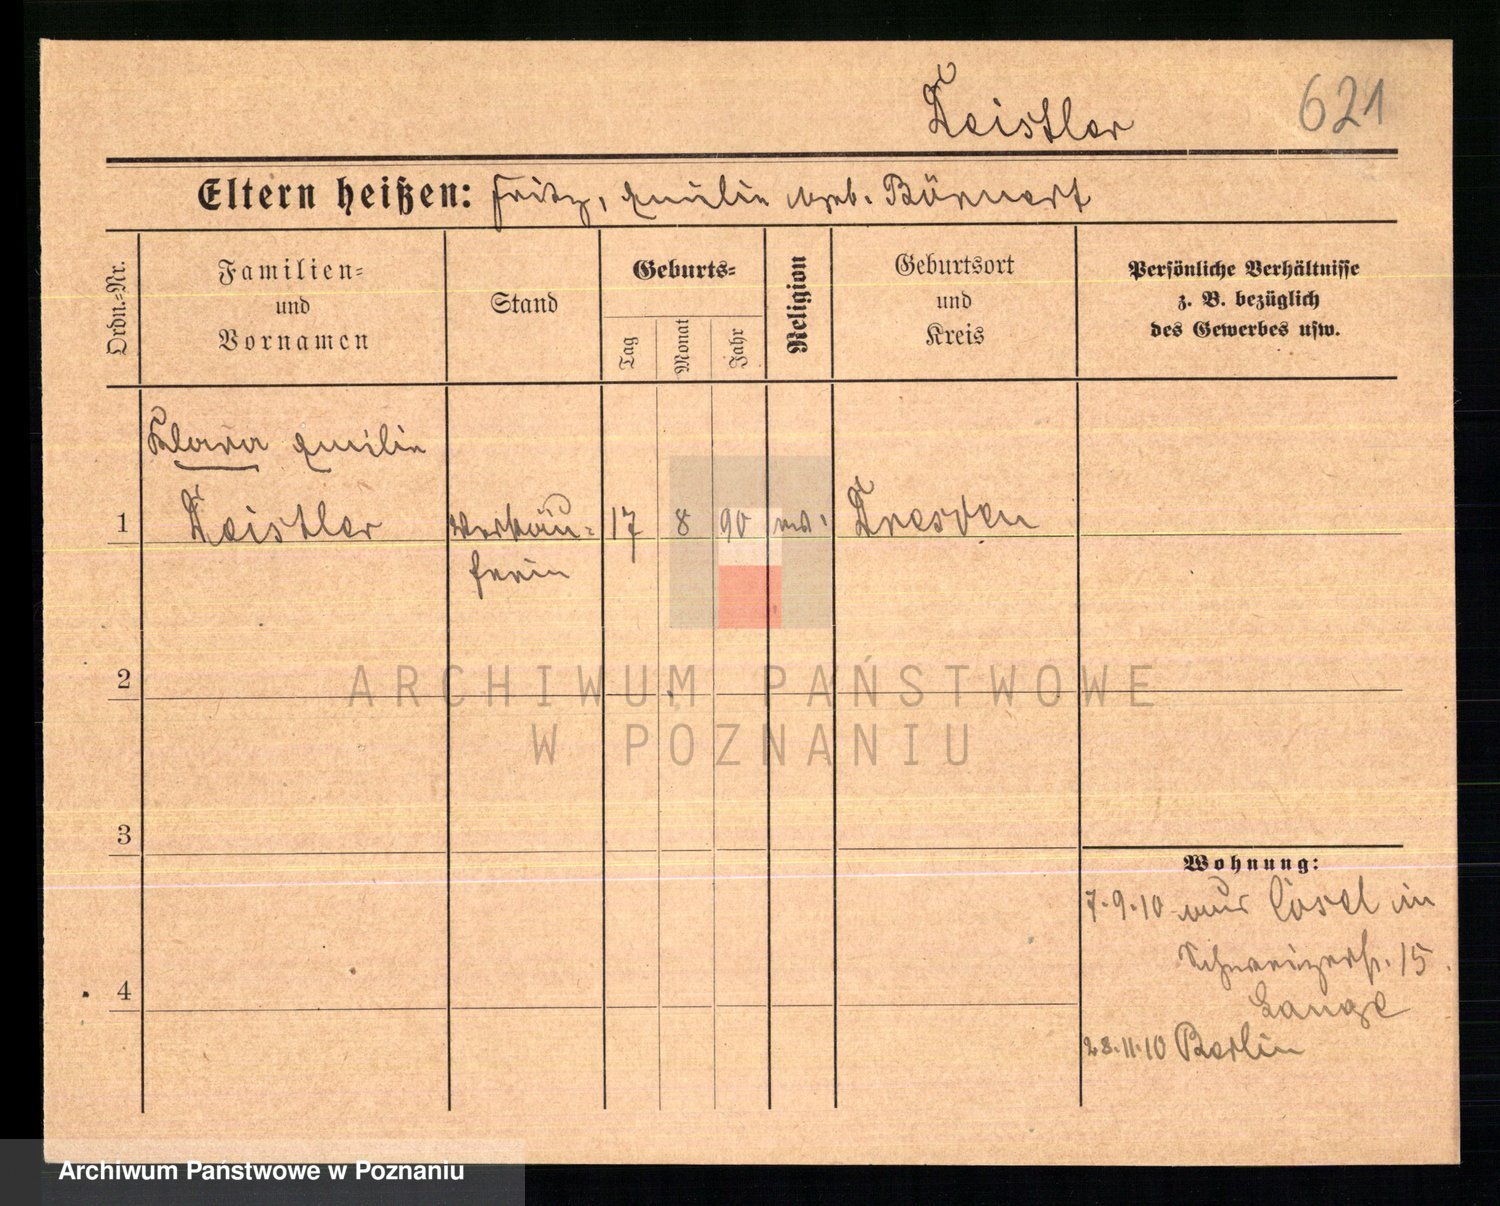 Deistler 621
Eltern heißen: Fritz, Emilie geb. Börnert
Ordn.-Nr.
Familien-
und
Vornamen
Stand
Geburts-
Tag
Monat
Jahr
Religion
Geburtsort
und
Kreis
Persönliche Verhältnisse
z. B. bezüglich
des Gewerbes usw.
Klara Emilie
1 Deistler Verkäu- 17 8 90 ev. Dresden
ferin
2
3
4
Wohnung:
7.9.10 aus in
Schweizerstr. 15.
Lange
28.11.10 Berlin
ARCHIWUM PAŃSTWOWE
W POZNANIU
Archiwum Państwowe w Poznaniu